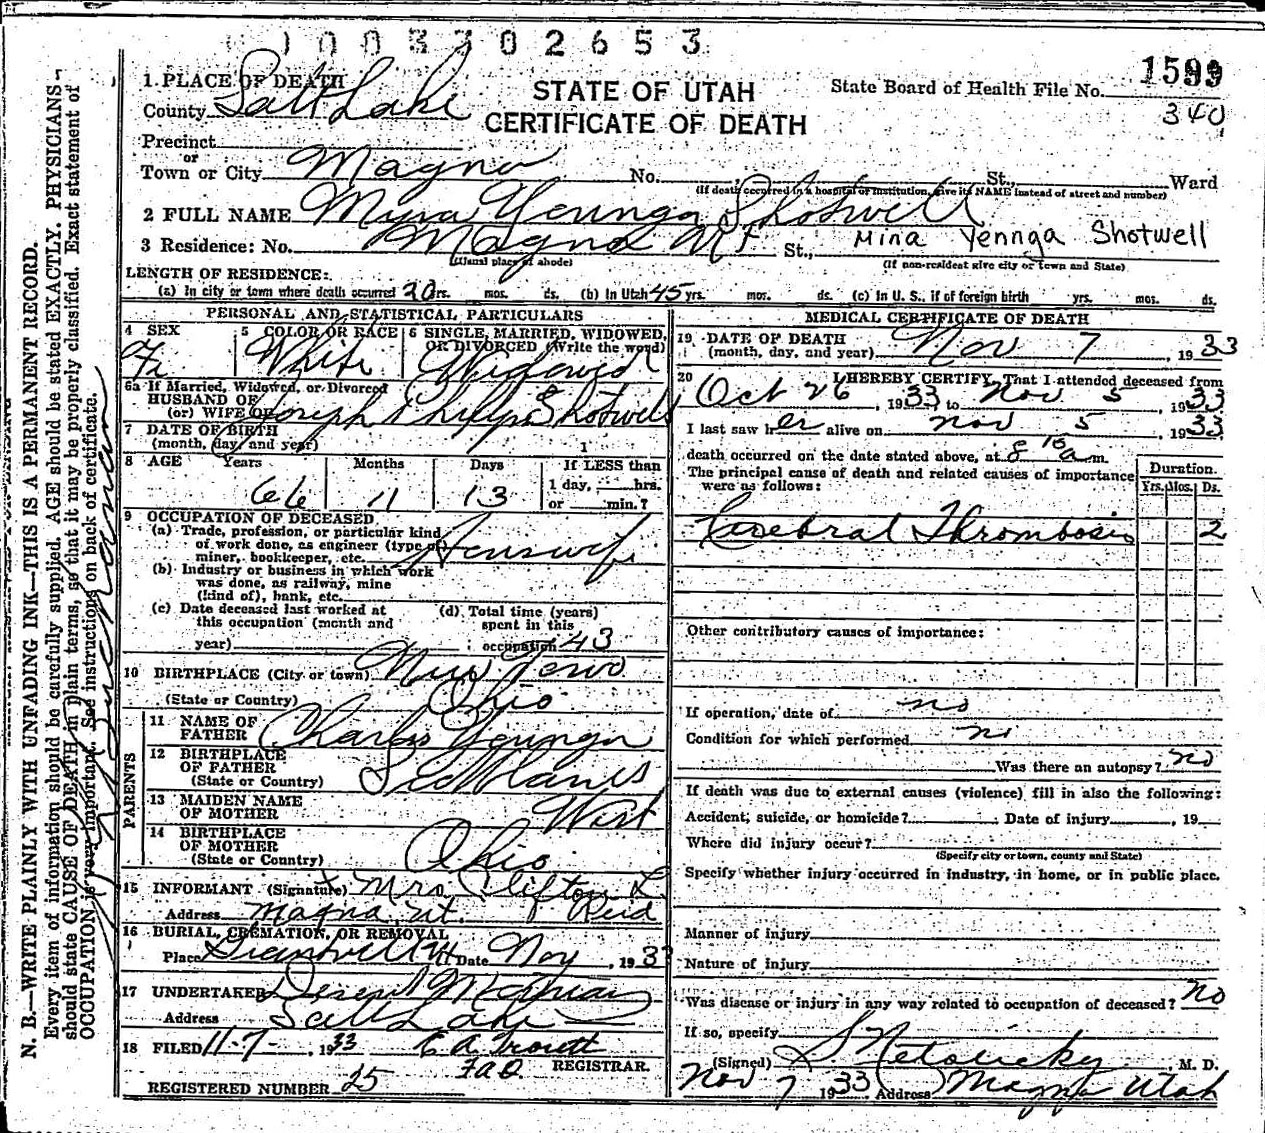 1003302653
1599
340
1. PLACE OF DEATH
County Salt Lake
STATE OF UTAH
CERTIFICATE OF DEATH
State Board of Health File No.
Precinct
or
Town or City Magna No. St., Ward
(If death occurred in a hospital or institution, give its NAME instead of street and number)
2 FULL NAME Myra Younga Shotwell
3 Residence: No. Magna Ut St., Mina Yennga Shotwell
(Usual place of abode) (If non-resident give city or town and State)
LENGTH OF RESIDENCE:
(a) In city or town where death occurred 20 yrs. mos. ds. (b) In Utah 45 yrs. mos. ds. (c) In U. S., if of foreign birth yrs. mos. ds.
PERSONAL AND STATISTICAL PARTICULARS
4 SEX
5 COLOR OR RACE White
6 SINGLE, MARRIED, WIDOWED, OR DIVORCED (Write the word) Widowed
6a If Married, Widowed, or Divorced
HUSBAND OF
(or) WIFE OF Joseph Phillip Shotwell
7 DATE OF BIRTH
(month, day, and year) 1
8 AGE Years Months Days If LESS than
1 day, hrs.
66 11 13 or min.?
9 OCCUPATION OF DECEASED
(a) Trade, profession, or particular kind
of work done, as engineer (type of)
miner, bookkeeper, etc. Housewife
(b) Industry or business in which work
was done, as railway, mine
(kind of), bank, etc.
(c) Date deceased last worked at
this occupation (month and
year)
(d) Total time (years)
spent in this
occupation 43
10 BIRTHPLACE (City or town)
(State or Country) Ohio
PARENTS
11 NAME OF
FATHER Charles Younga
12 BIRTHPLACE
OF FATHER
(State or Country)
13 MAIDEN NAME
OF MOTHER West
14 BIRTHPLACE
OF MOTHER
(State or Country) Ohio
15 INFORMANT (Signature) Mrs. Clifton L. Reid
Address Magna, Ut.
16 BURIAL, CREMATION, OR REMOVAL
Place Date Nov , 1933
17 UNDERTAKER
Address Salt Lake
18 FILED 11-7- , 1933 REGISTRAR.
REGISTERED NUMBER 25
MEDICAL CERTIFICATE OF DEATH
19 DATE OF DEATH
(month, day, and year) Nov 7 1933
20 I HEREBY CERTIFY, That I attended deceased from
Oct 26 , 1933 to Nov 5 , 1933
I last saw her alive on Nov 5 , 1933
death occurred on the date stated above, at 8 a m.
The principal cause of death and related causes of importance
were as follows:
Duration
Yrs. Mos. Ds.
Cerebral Thrombosis 2
Other contributory causes of importance:
If operation, date of no
Condition for which performed no
Was there an autopsy? no
If death was due to external causes (violence) fill in also the following:
Accident, suicide, or homicide? Date of injury , 19
Where did injury occur?
(Specify city or town, county and State)
Specify whether injury occurred in industry, in home, or in public place.
Manner of injury
Nature of injury
Was disease or injury in any way related to occupation of deceased? no
If so, specify
(Signed) S Netolicky M. D.
Nov 7 1933 Address Magna Utah
N. B.—WRITE PLAINLY WITH UNFADING INK—THIS IS A PERMANENT RECORD.
Every item of information should be carefully supplied. AGE should be stated EXACTLY. PHYSICIANS
should state CAUSE OF DEATH in plain terms, so that it may be properly classified. Exact statement of
OCCUPATION is very important. See instructions on back of certificate.